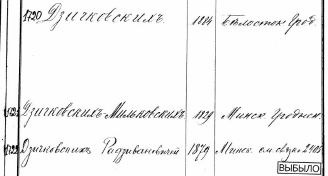 1720 Дзичковскихъ 1884 Бѣлосток. Грод.
1721 Дзичковскихъ-Мильковскихъ 1829 Минск. Гродненск.
1722 Дзичковскихъ 1879 Минск. см. связ. 2408
ВЫБЫЛО